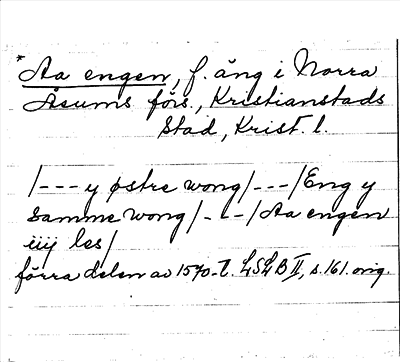 *Aa engen, f. äng i Norra
Åsums förs., Kristianstads
Stad, Krist. l.
/--- y østre wong/---/Eng y
samme wong/---/Aa engen
iiij les/
förra delen av 1570-t. LSLB II, s. 161. orig.